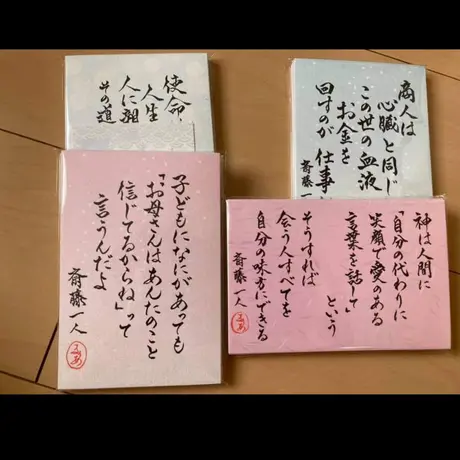 使命
人生
人に
その道
商人は
心臓と同じ
この世の血液
お金を
回すのが 仕事
斎藤一
子どもになにがあっても
「お母さんはあんたのこと
信じてるからね」って
言うんだよ
斎藤一人
神は人間に
「自分の代わりに
笑顔で愛のある
言葉を話して」という
そうすれば
会う人すべてを
自分の味方にできる
斎藤一人